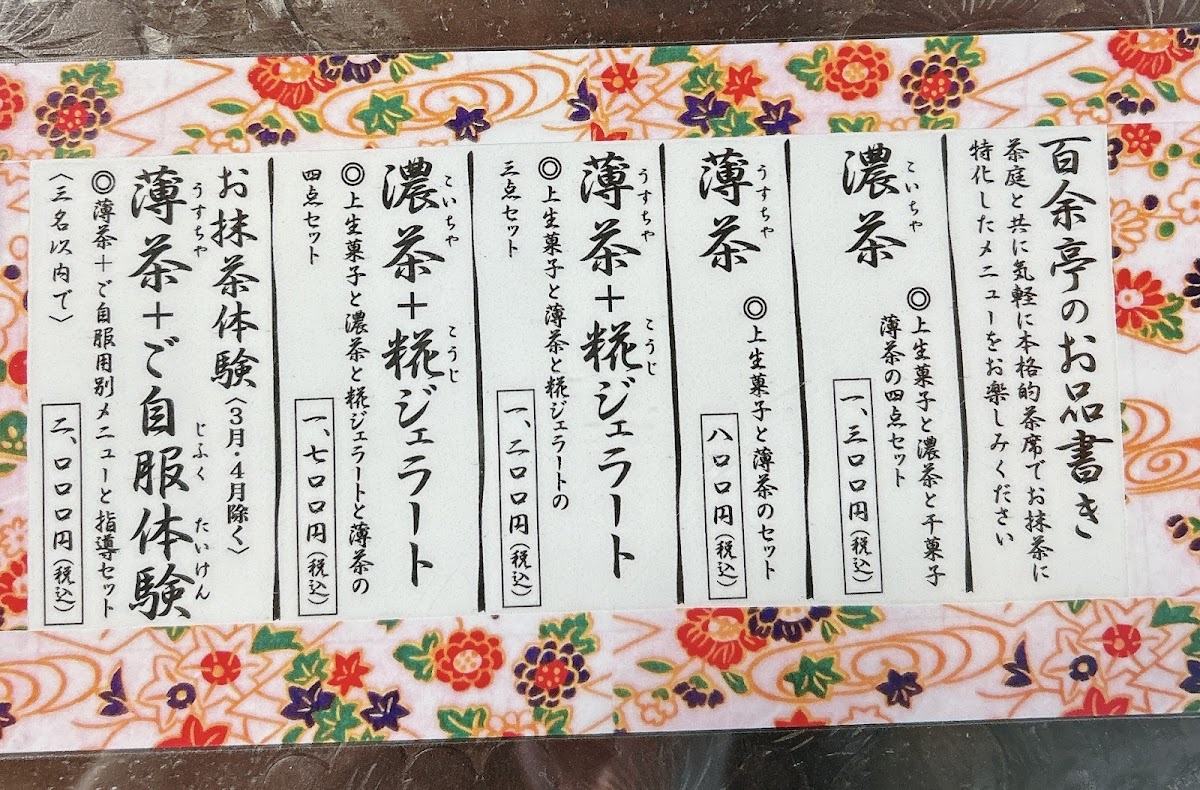 百余亭のお品書き
茶庭と共に気軽に本格的茶席でお抹茶に
特化したメニューをお楽しみください
こいちゃ
濃茶
◎上生菓子と濃茶と干菓子
薄茶の四点セット
一、三〇〇円(税込)
うすちゃ
薄茶
◎上生菓子と薄茶のセット
八〇〇円(税込)
うすちゃ こうじ
薄茶+糀ジェラート
◎上生菓子と薄茶と糀ジェラートの
三点セット
一、二〇〇円(税込)
こいちゃ こうじ
濃茶+糀ジェラート
◎上生菓子と濃茶と糀ジェラートと薄茶の
四点セット
一、七〇〇円(税込)
お抹茶体験〈3月・4月除く〉
うすちゃ じふく たいけん
薄茶+ご自服体験
◎薄茶+ご自服用別メニューと指導セット
〈三名以内で〉
二、〇〇〇円(税込)